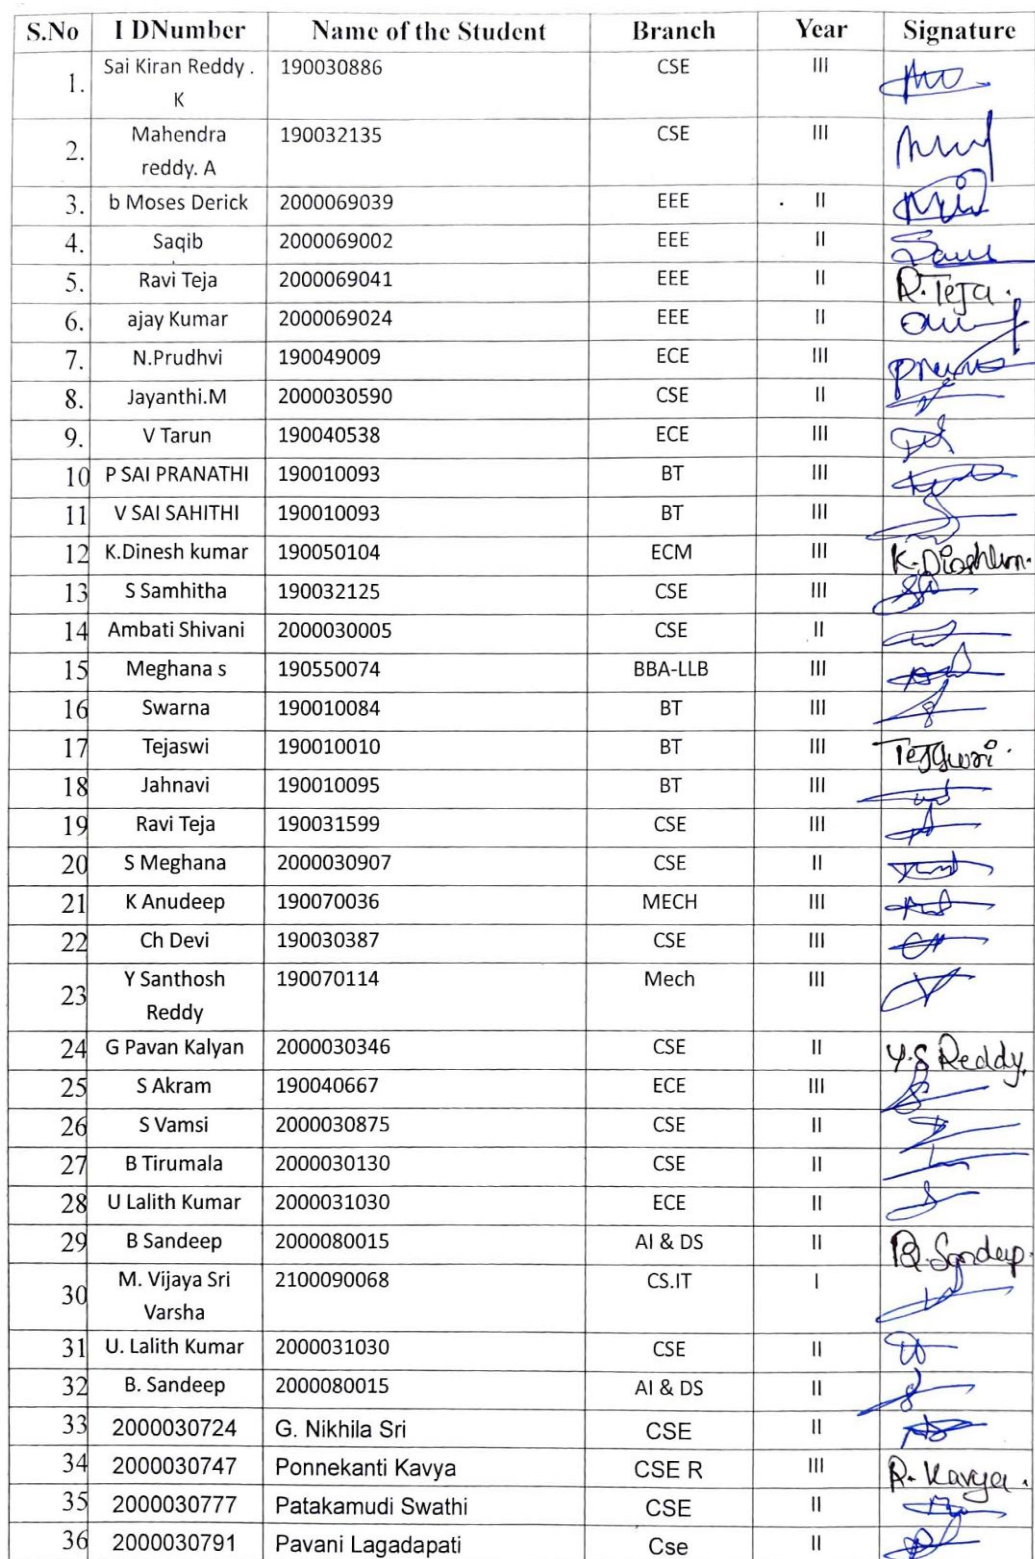 S.No I DNumber Name of the Student Branch Year Signature
1. Sai Kiran Reddy . K 190030886 CSE III
2. Mahendra reddy. A 190032135 CSE III
3. b Moses Derick 2000069039 EEE II
4. Saqib 2000069002 EEE II
5. Ravi Teja 2000069041 EEE II R.Teja.
6. ajay Kumar 2000069024 EEE II
7. N.Prudhvi 190049009 ECE III
8. Jayanthi.M 2000030590 CSE II
9. V Tarun 190040538 ECE III
10 P SAI PRANATHI 190010093 BT III
11 V SAI SAHITHI 190010093 BT III
12 K.Dinesh kumar 190050104 ECM III
13 S Samhitha 190032125 CSE III
14 Ambati Shivani 2000030005 CSE II
15 Meghana s 190550074 BBA-LLB III
16 Swarna 190010084 BT III
17 Tejaswi 190010010 BT III
18 Jahnavi 190010095 BT III
19 Ravi Teja 190031599 CSE III
20 S Meghana 2000030907 CSE II
21 K Anudeep 190070036 MECH III
22 Ch Devi 190030387 CSE III
23 Y Santhosh Reddy 190070114 Mech III
24 G Pavan Kalyan 2000030346 CSE II Y.S Reddy.
25 S Akram 190040667 ECE III
26 S Vamsi 2000030875 CSE II
27 B Tirumala 2000030130 CSE II
28 U Lalith Kumar 2000031030 ECE II
29 B Sandeep 2000080015 AI & DS II B.Sandeep.
30 M. Vijaya Sri Varsha 2100090068 CS.IT I
31 U. Lalith Kumar 2000031030 CSE II
32 B. Sandeep 2000080015 AI & DS II
33 2000030724 G. Nikhila Sri CSE II
34 2000030747 Ponnekanti Kavya CSE R III P. Kavya.
35 2000030777 Patakamudi Swathi CSE II
36 2000030791 Pavani Lagadapati Cse II